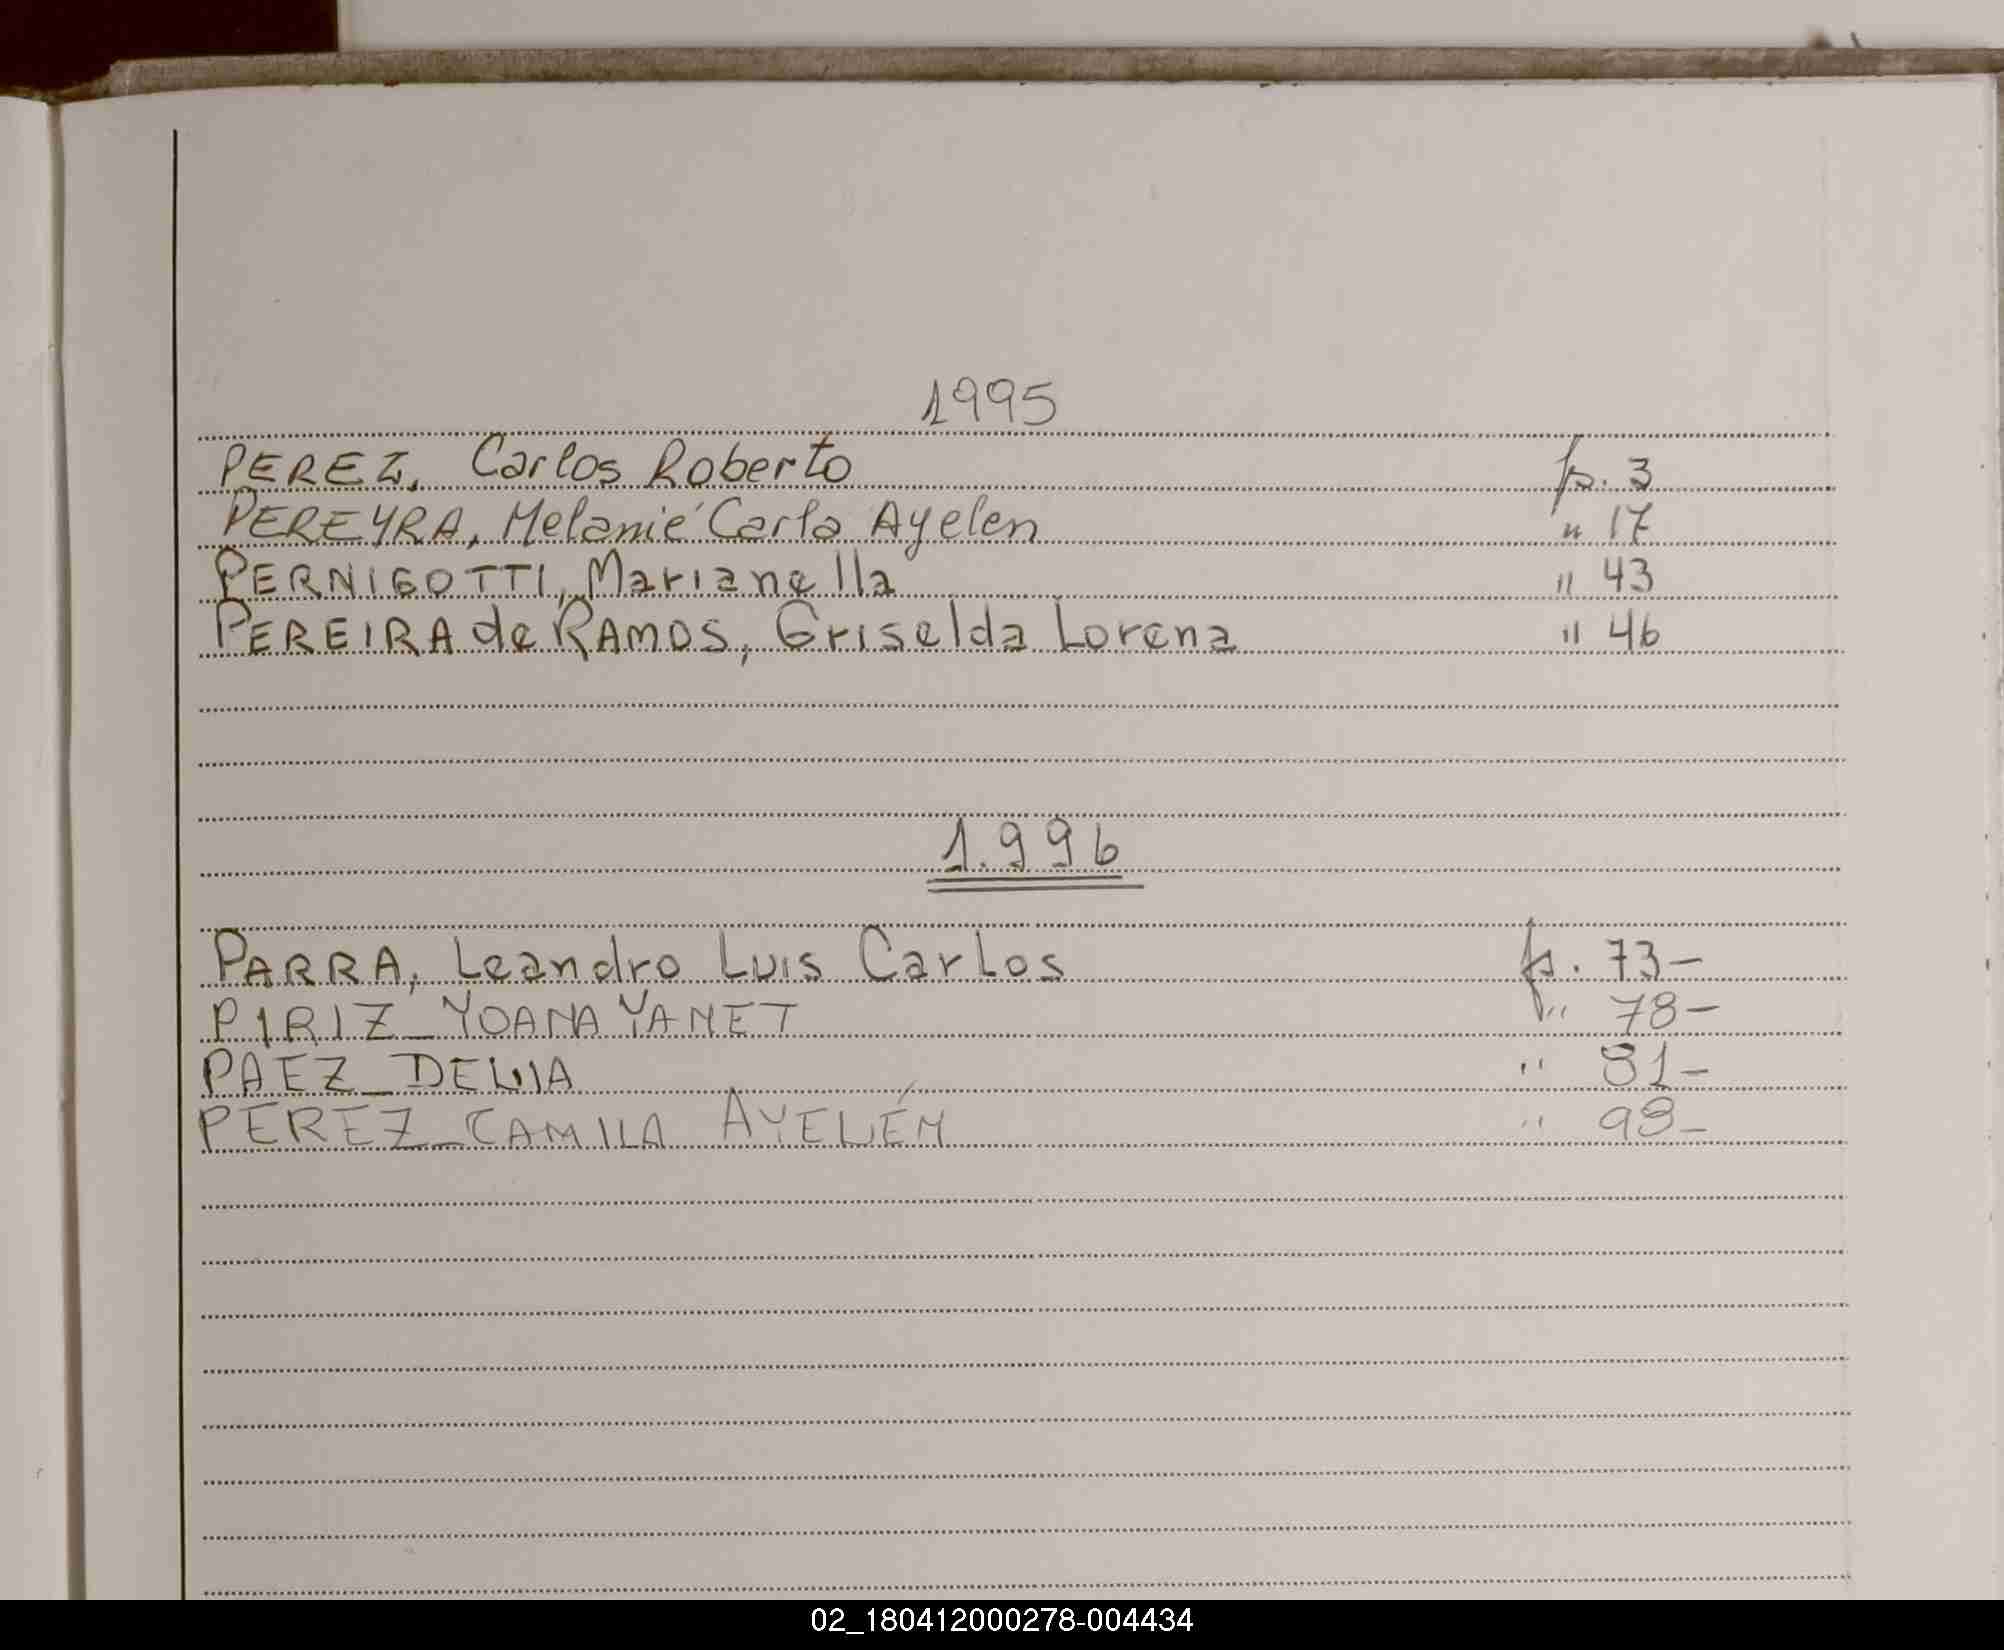 1995
PEREZ, Carlos Roberto fs. 3
PEREYRA, Melanie Carla Ayelen " 17
PERNIGOTTI, Marianella " 43
PEREIRA de RAMOS, Griselda Lorena " 46
1.996
PARRA, Leandro Luis Carlos fs. 73-
PIRIZ_YOANA YANET " 78-
PAEZ_DELIA " 81-
PEREZ_CAMILA AYELÉN " 98-
02_180412000278-004434